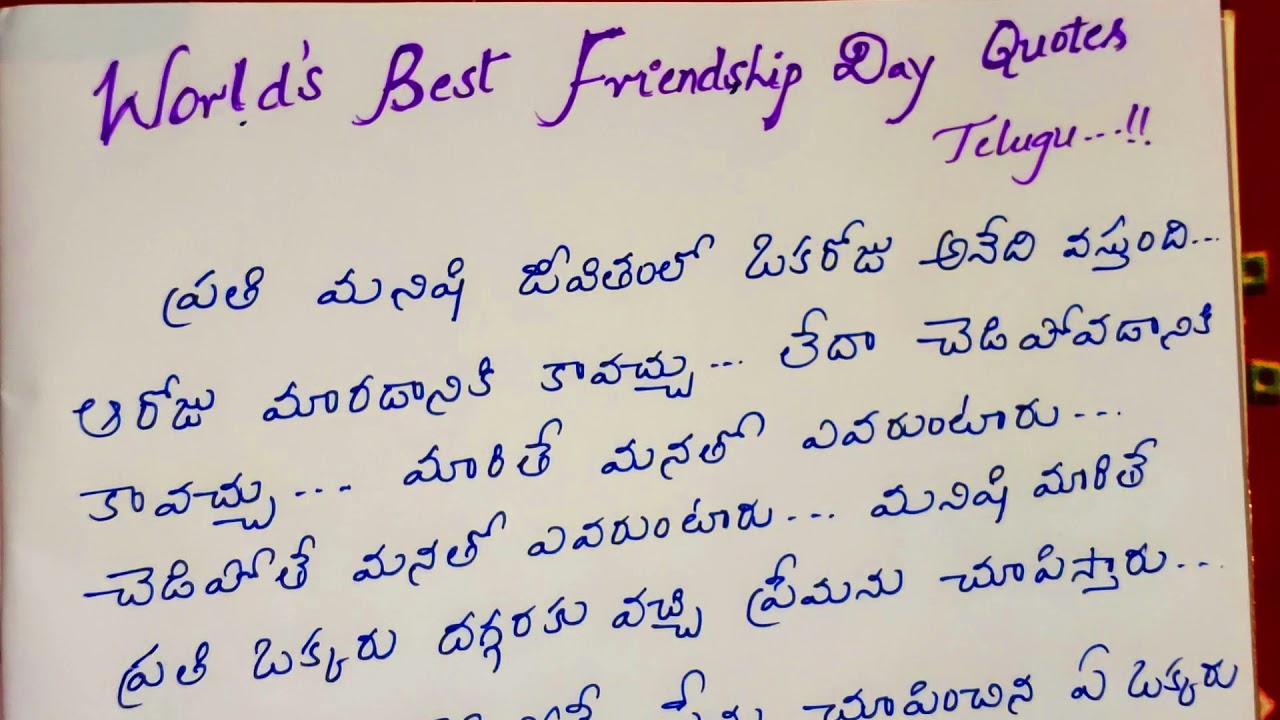 World's Best Friendship Day Quotes
Telugu...!!
ప్రతి మనిషి జీవితంలో ఒకరోజు అనేది వస్తుంది...
ఆరోజు మారడానికి కావచ్చు... లేదా చెడిపోవడానికి
కావచ్చు... మారితే మనతో ఎవరుంటారు...
చెడిపోతే మనతో ఎవరుంటారు... మనిషి మారితే
ప్రతి ఒక్కరు దగ్గరకు వచ్చి ప్రేమను చూపిస్తారు...
చూపించిన ఏ ఒక్కరు